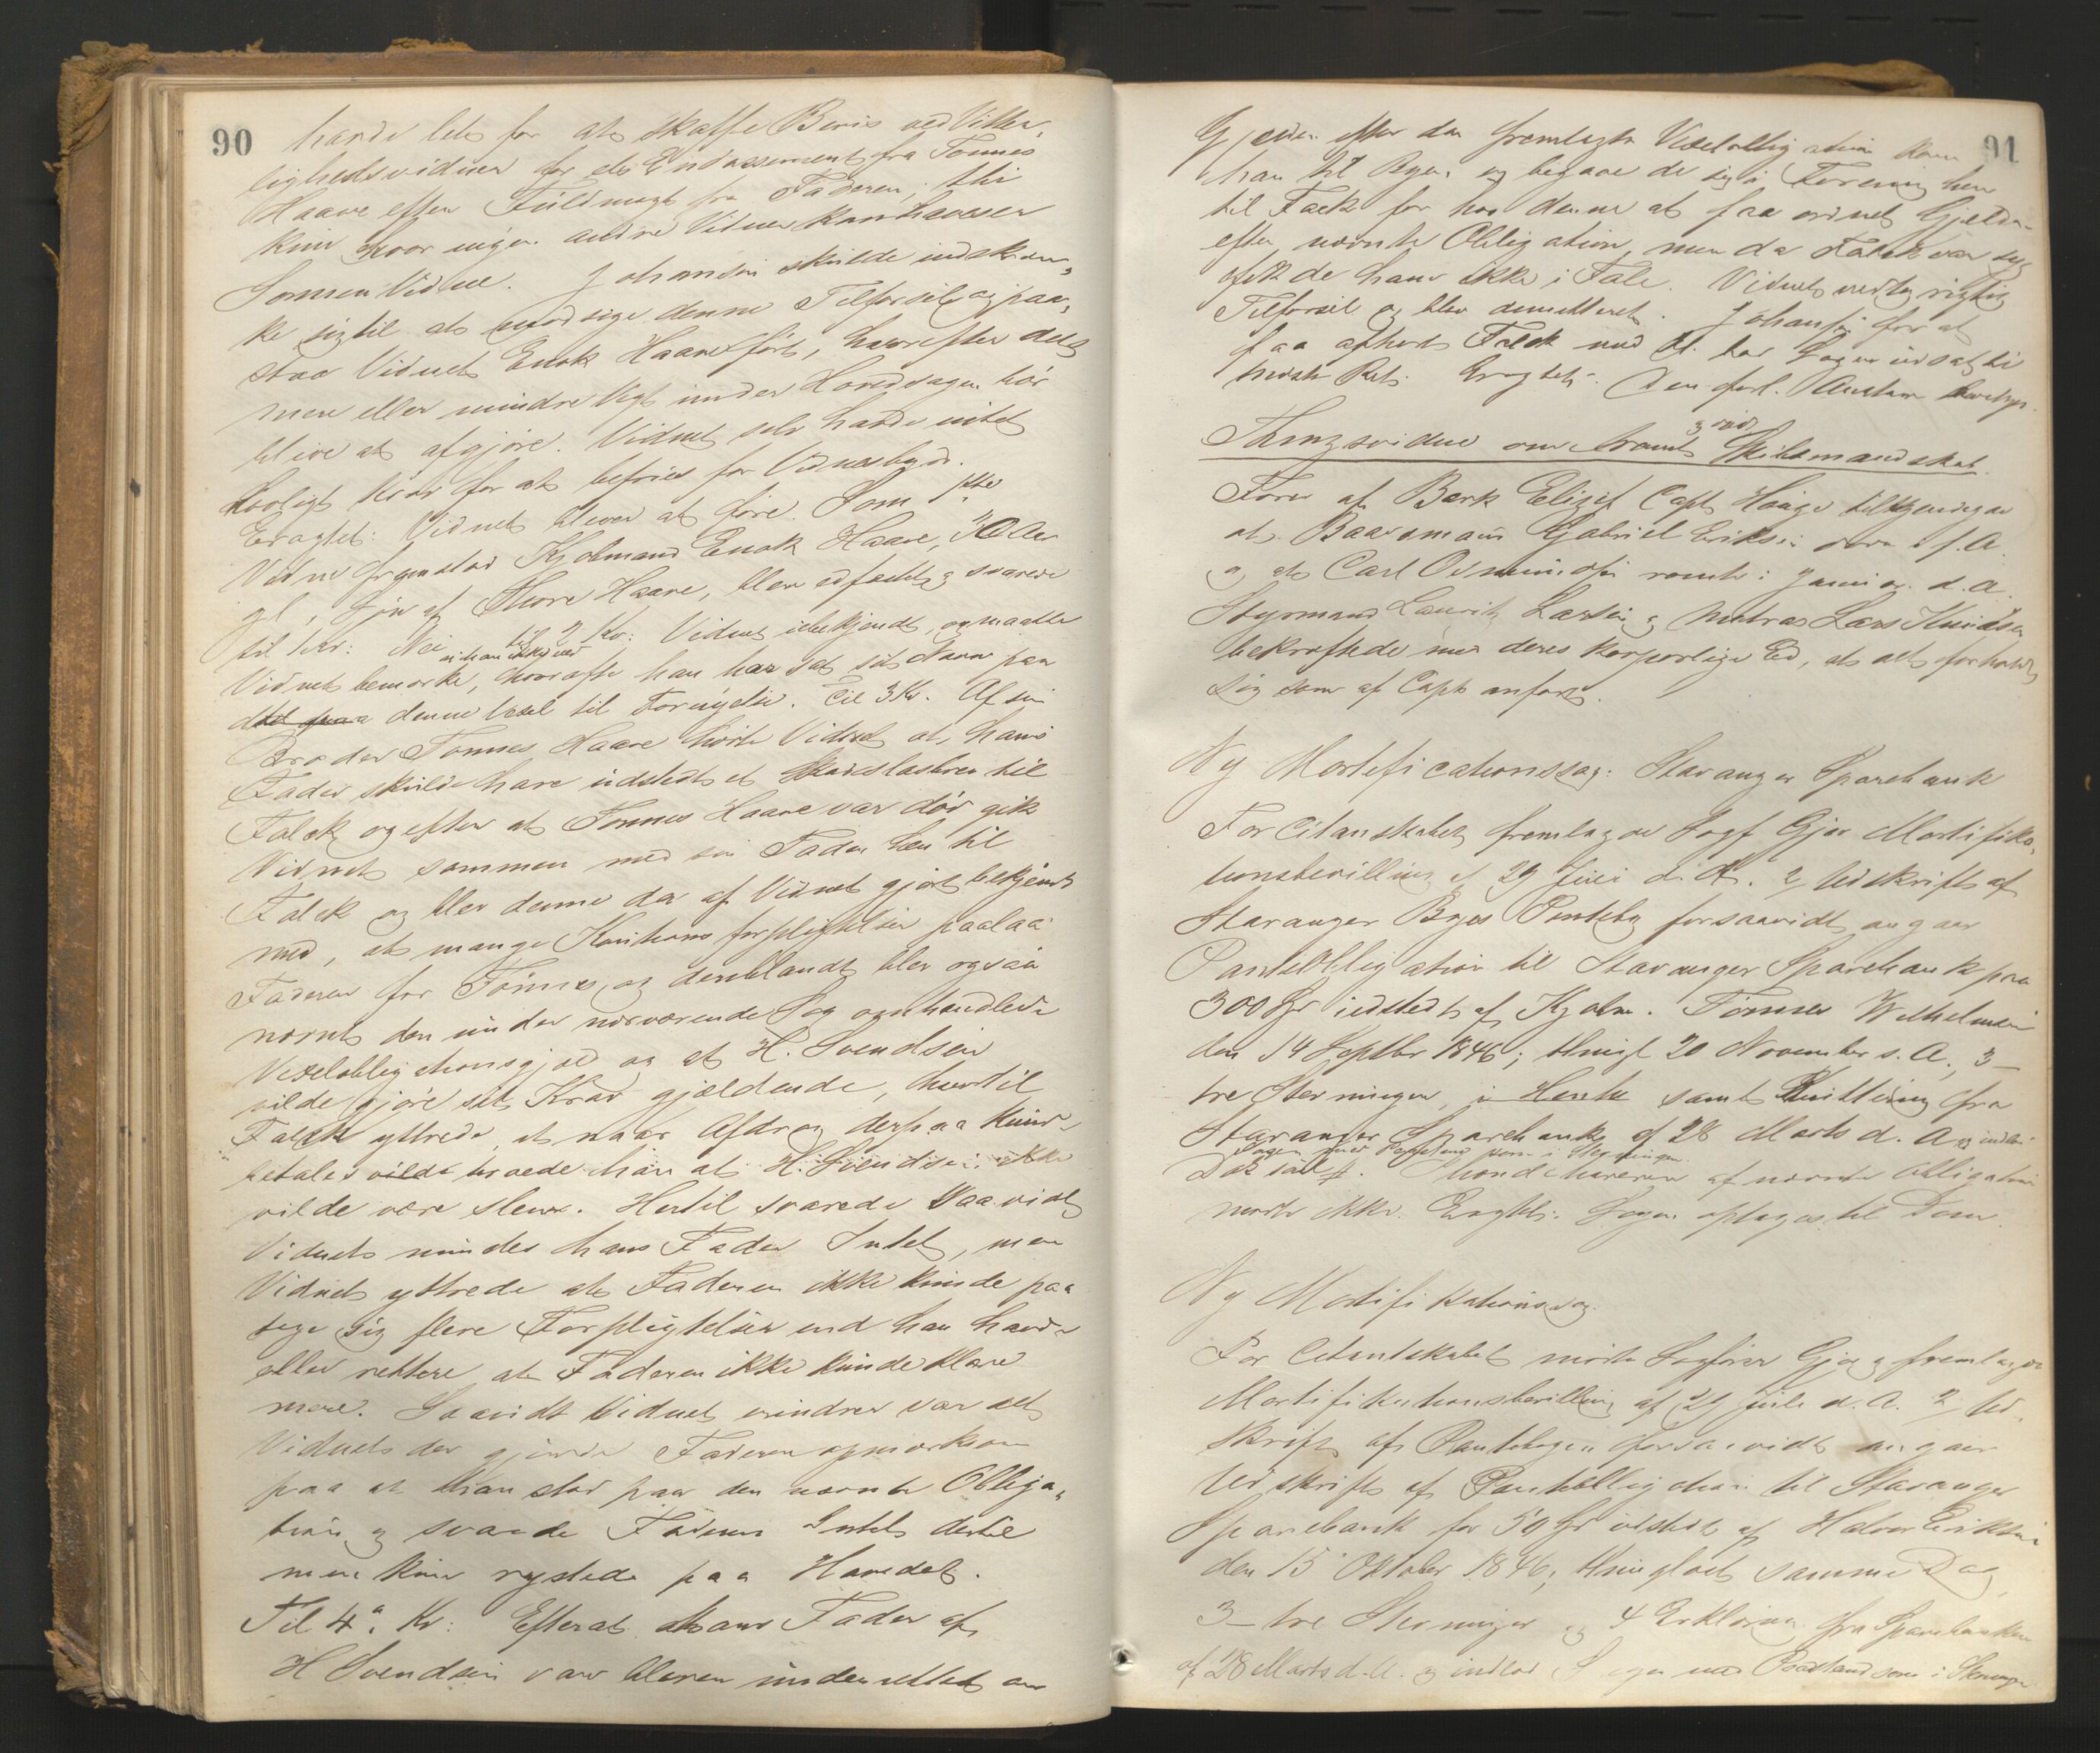 90
havde let for at skaffe Bevis ved Vitter,
lighedsvidner for et Endossement fra Tønnes
Haave efter Fuldmagt fra Faderen; thi
kun hvor ingen andre Vidner kan haves er
Sønnen Vidne. Johansen skulde indskræn,
ke sig til at modsige denne Tilførsel og paa,
staa Vidnet Enok Haave ført, hvorefter dets
mere eller mindre Vægt under Hovedsagen bør
blive at afgjøre. Vidnet selv havde intet
lovligt Krav for at befries for Vidnesbyrd.
Eragtet: Vidnet bliver at føre. Som
Vidne fremstod Kjøbmand Enok Haave,
gl, Søn af Haave, blev edfæstet og svarede
til 1 Kv: Nei til 2 Kv: Vidnet ubekjendt, og maatte
Vidnet bemærke, hvorofte han har sat sit Navn paa
denne Vexel til Fornyelse. Til 3 Kv. Af sin
Broder Tønnes Haave hørte Vidnet at hans
Fader skulde have udstedt et Skadesløsbrev til
Falck og efter at Tønnes Haave var død gik
Vidnet sammen med sin Fader hen til
Falck og blev denne da af Vidnet gjort bekjendt
med, at mange Kautions forpligtelser paalaa
Faderen for Tønnes, og deriblandt blev ogsaa
nævnt den under nærværende Sag omhandlede
Vexelobligationsgjæld og at H. Svendsen
vilde gjøre sit Krav gjældende, hvortil
Falck yttrede, at naar Afdrag derpaa kunde
betales vilde troede han at H. Svendsen ikke
vilde være slem. Hertil svarede saavidt
Vidnet mindes hans Fader Intet, men
Vidnet yttrede at Faderen ikke kunde paa
tage sig flere Forpligtelser end han havde
eller rettere at Faderen ikke kunde klare
mere. Saavidt Vidnet erindrer var det
Vidnet der gjorde Faderen opmærksom
paa at han stod paa den nævnte Obliga,
tion og svarede Faderen Intet dertil
men kun rystede paa Hovedet.
Til 4de Kv: Efterat hans Fader af
H Svendsen var bleven underrettet om
91
Gjælden efter den fremlagte Vexelobligation kom
han til Byen og begave de sig i Forening hen
til Falck for hos denne at faa ordnet Gjælden
efter nævnte Obligation, men da Falck var syg
fik de ham ikke i Tale. Vidnet vedtog rigtig
Tilførsel og blev demitteret. Johansen for at
faa afhørt Falck med Fl. har Sagen udsat til
næste Ret. Eragtet:
Thingsvidne om Skibsmandskab
Fører af Bark Elizet Capt Hauge tilkjendegav
at Baadsmand Gabriel Eriksen f. A.
og at Carl Osmundsen rømte i Juni d. A.
Styrmand Lauritz Larsen og Matros Lars Knudsen
bekræftede med deres korporlige Ed, at alt forholdt
sig som af Capt anført.
Ny Mortificationssag: Stavanger Sparebank
For Citantskabet fremlagde Sagf Gjør Mortifika,
tionsbevilling af 29 Juli d. A. 2, Udskrift af
Stavanger Byes Pantebog forsaavidt angaar
Pantobligation til Stavanger Sparebank paa
300 Spd udstedt af Kjøbm. Tønnes Wilhelmsen
den 14 Septbr 1846; thingl 20 November s. A., 3_
tre Stevninger, samt Kvittering fra
Stavanger Sparebank af 28 Marts d. A og indlod
Sagen med Paastand som i Stevningen.
Ihændehaveren af nævnte Obligation
mødte ikke. Eragtet: Sagen optages til Dom.
Ny Mortifikationssag.
For Citantskabet mødte Sagfører Gjør og fremlagde
Mortifikationsbevilling af 29 Juli d. A. 2, Ud,
skrift af Pantebogen forsaavidt angaar
Udskrift af Pantobligation til Stavanger
Sparebank for 50 Spd udstedt af Halvor Eriksen
den 15 Oktober 1846, thinglæst samme Dag,
3_ tre Stevninger og 4 Erklæring fra Sparebanken
af 28 Marts d. A. og indlod Sagen med Paastand som i Stevningen